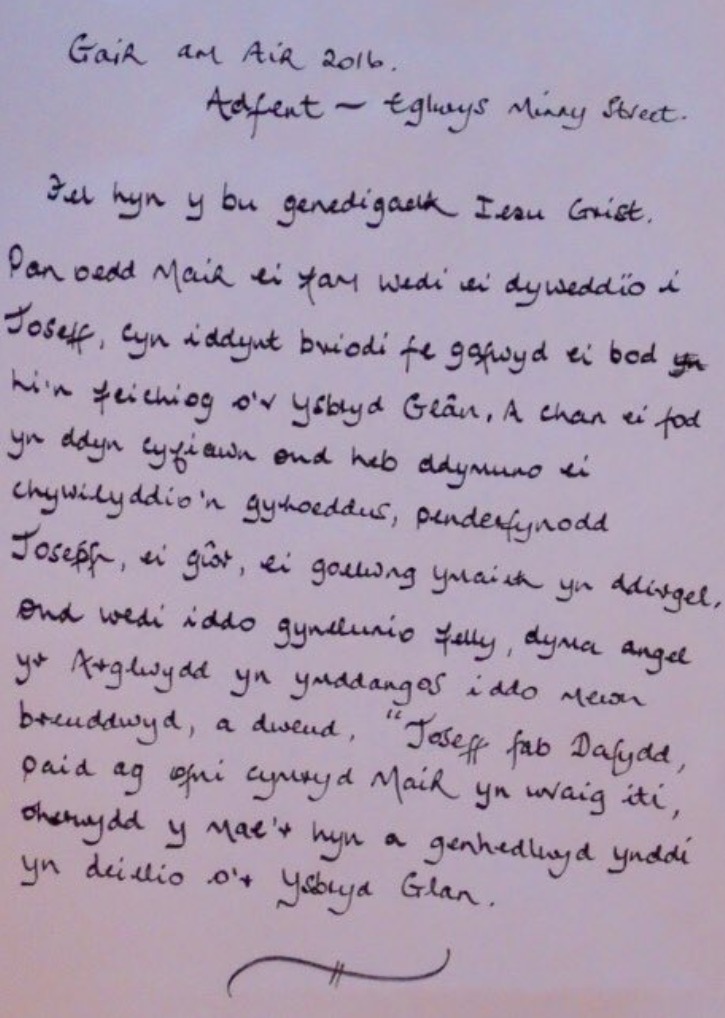 Gair am Air 2016.
Adfent – Eglwys Minny Street.
Fel hyn y bu genedigaeth Iesu Grist.
Pan oedd Mair ei fam wedi ei dyweddïo i
Joseff, cyn iddynt briodi fe gafwyd ei bod yn
hi'n feichiog o'r Ysbryd Glân. A chan ei fod
yn ddyn cyfiawn ond heb ddymuno ei
chywilyddio'n gyhoeddus, penderfynodd
Joseff, ei gŵr, ei gollwng ymaith yn ddirgel.
Ond wedi iddo gynllunio felly, dyma angel
yr Arglwydd yn ymddangos iddo mewn
breuddwyd, a dweud, "Joseff fab Dafydd,
paid ag ofni cymryd Mair yn wraig iti,
oherwydd y mae'r hyn a genhedlwyd ynddi
yn deillio o'r Ysbryd Glan.